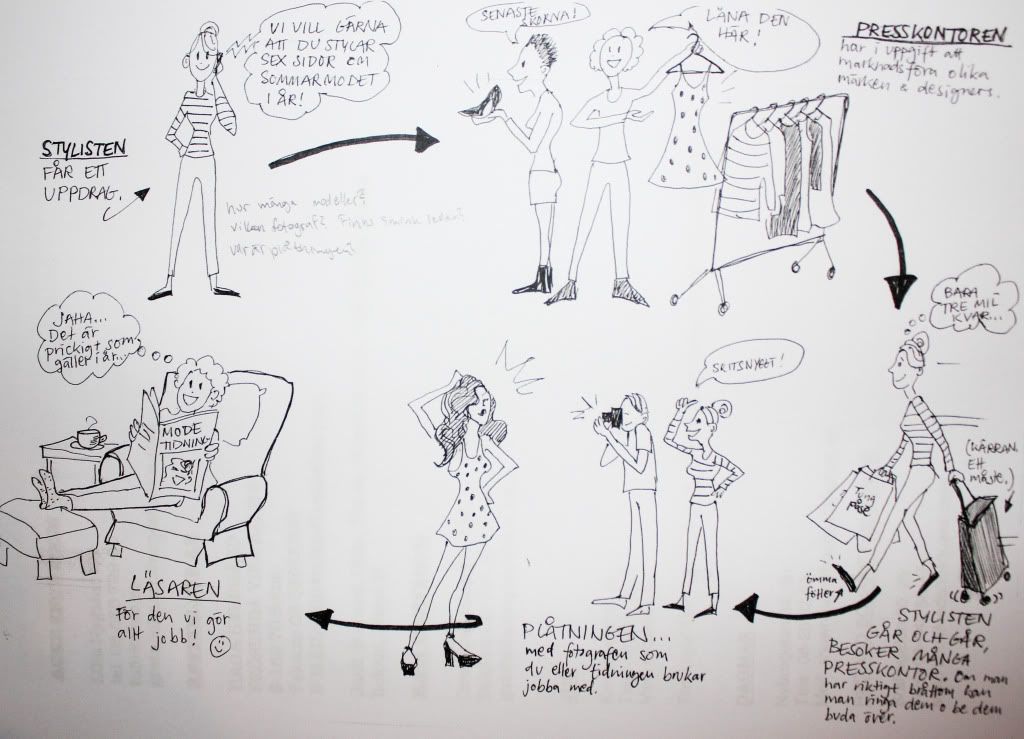 VI VILL GÄRNA
ATT DU STYLAR
SEX SIDOR OM
SOMMARMODET
I ÅR!
STYLISTEN
FÅR ETT
UPPDRAG.
hur många modeller?
vilken fotograf? Finns smink redan?
var är plåtningen?
SENASTE
SKORNA!
LÅNA DEN
HÄR!
PRESSKONTOREN
har i uppgift att
marknadsföra olika
märken & designers.
BARA
TRE MIL
KVAR...
(KÄRRAN.
ETT
MÅSTE.)
Tung
påse
ömma
fötter
STYLISTEN
GÅR OCH GÅR,
BESÖKER MÅNGA
PRESSKONTOR. Om man
har riktigt bråttom kan
man ringa dem o be dem
buda över.
SKITSNYGGT!
PLÅTNINGEN...
med fotografen som
du eller tidningen brukar
jobba med.
JAHA...
Det är
prickigt som
gäller i år...
MODE
TIDNING
LÄSAREN
För den vi gör
allt jobb!